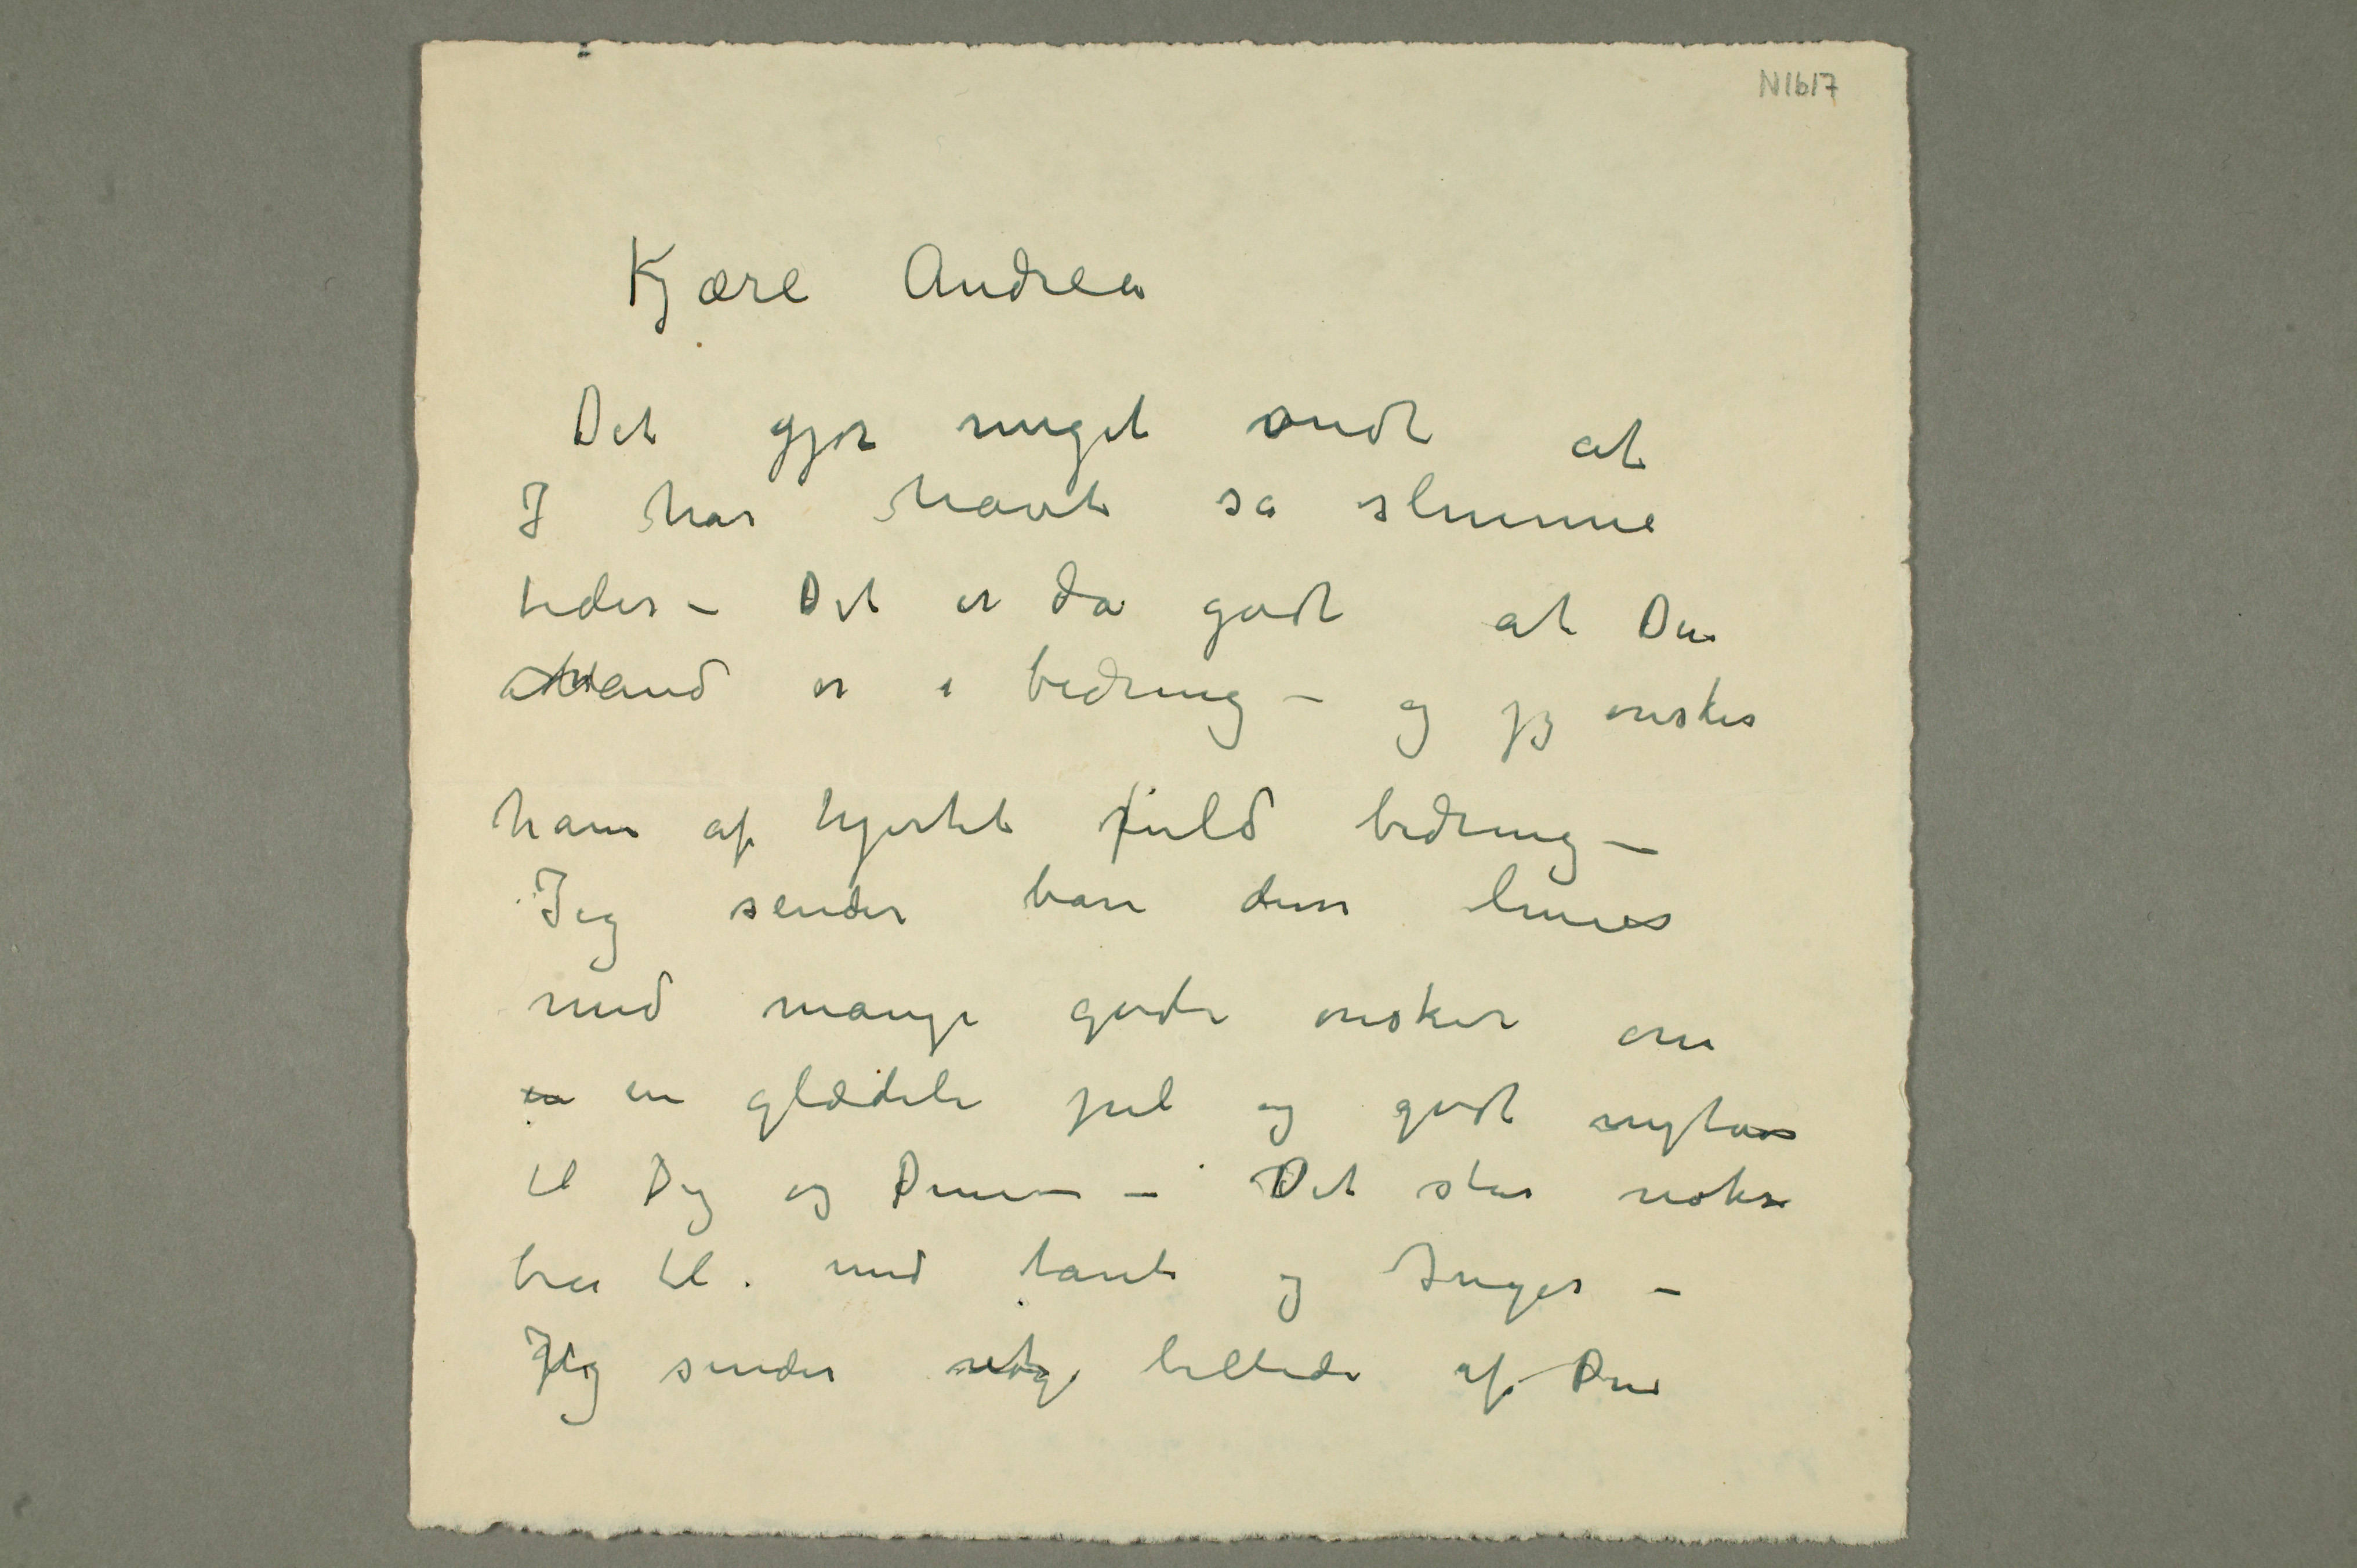 N1617
Kjære Andrea
Det gjør meget ondt at
I har havt så slemme
tider – Det er da godt at Din
Mand er i bedring – og jeg ønsker
ham af hjertet fuld bedring –
Jeg sender bare disse linier
med mange gode ønsker om
en en glædeli jul og godt nytår
til Dig og Dine – Det står nokså
bra til med tante og Inger –
Jeg sender billede af Din